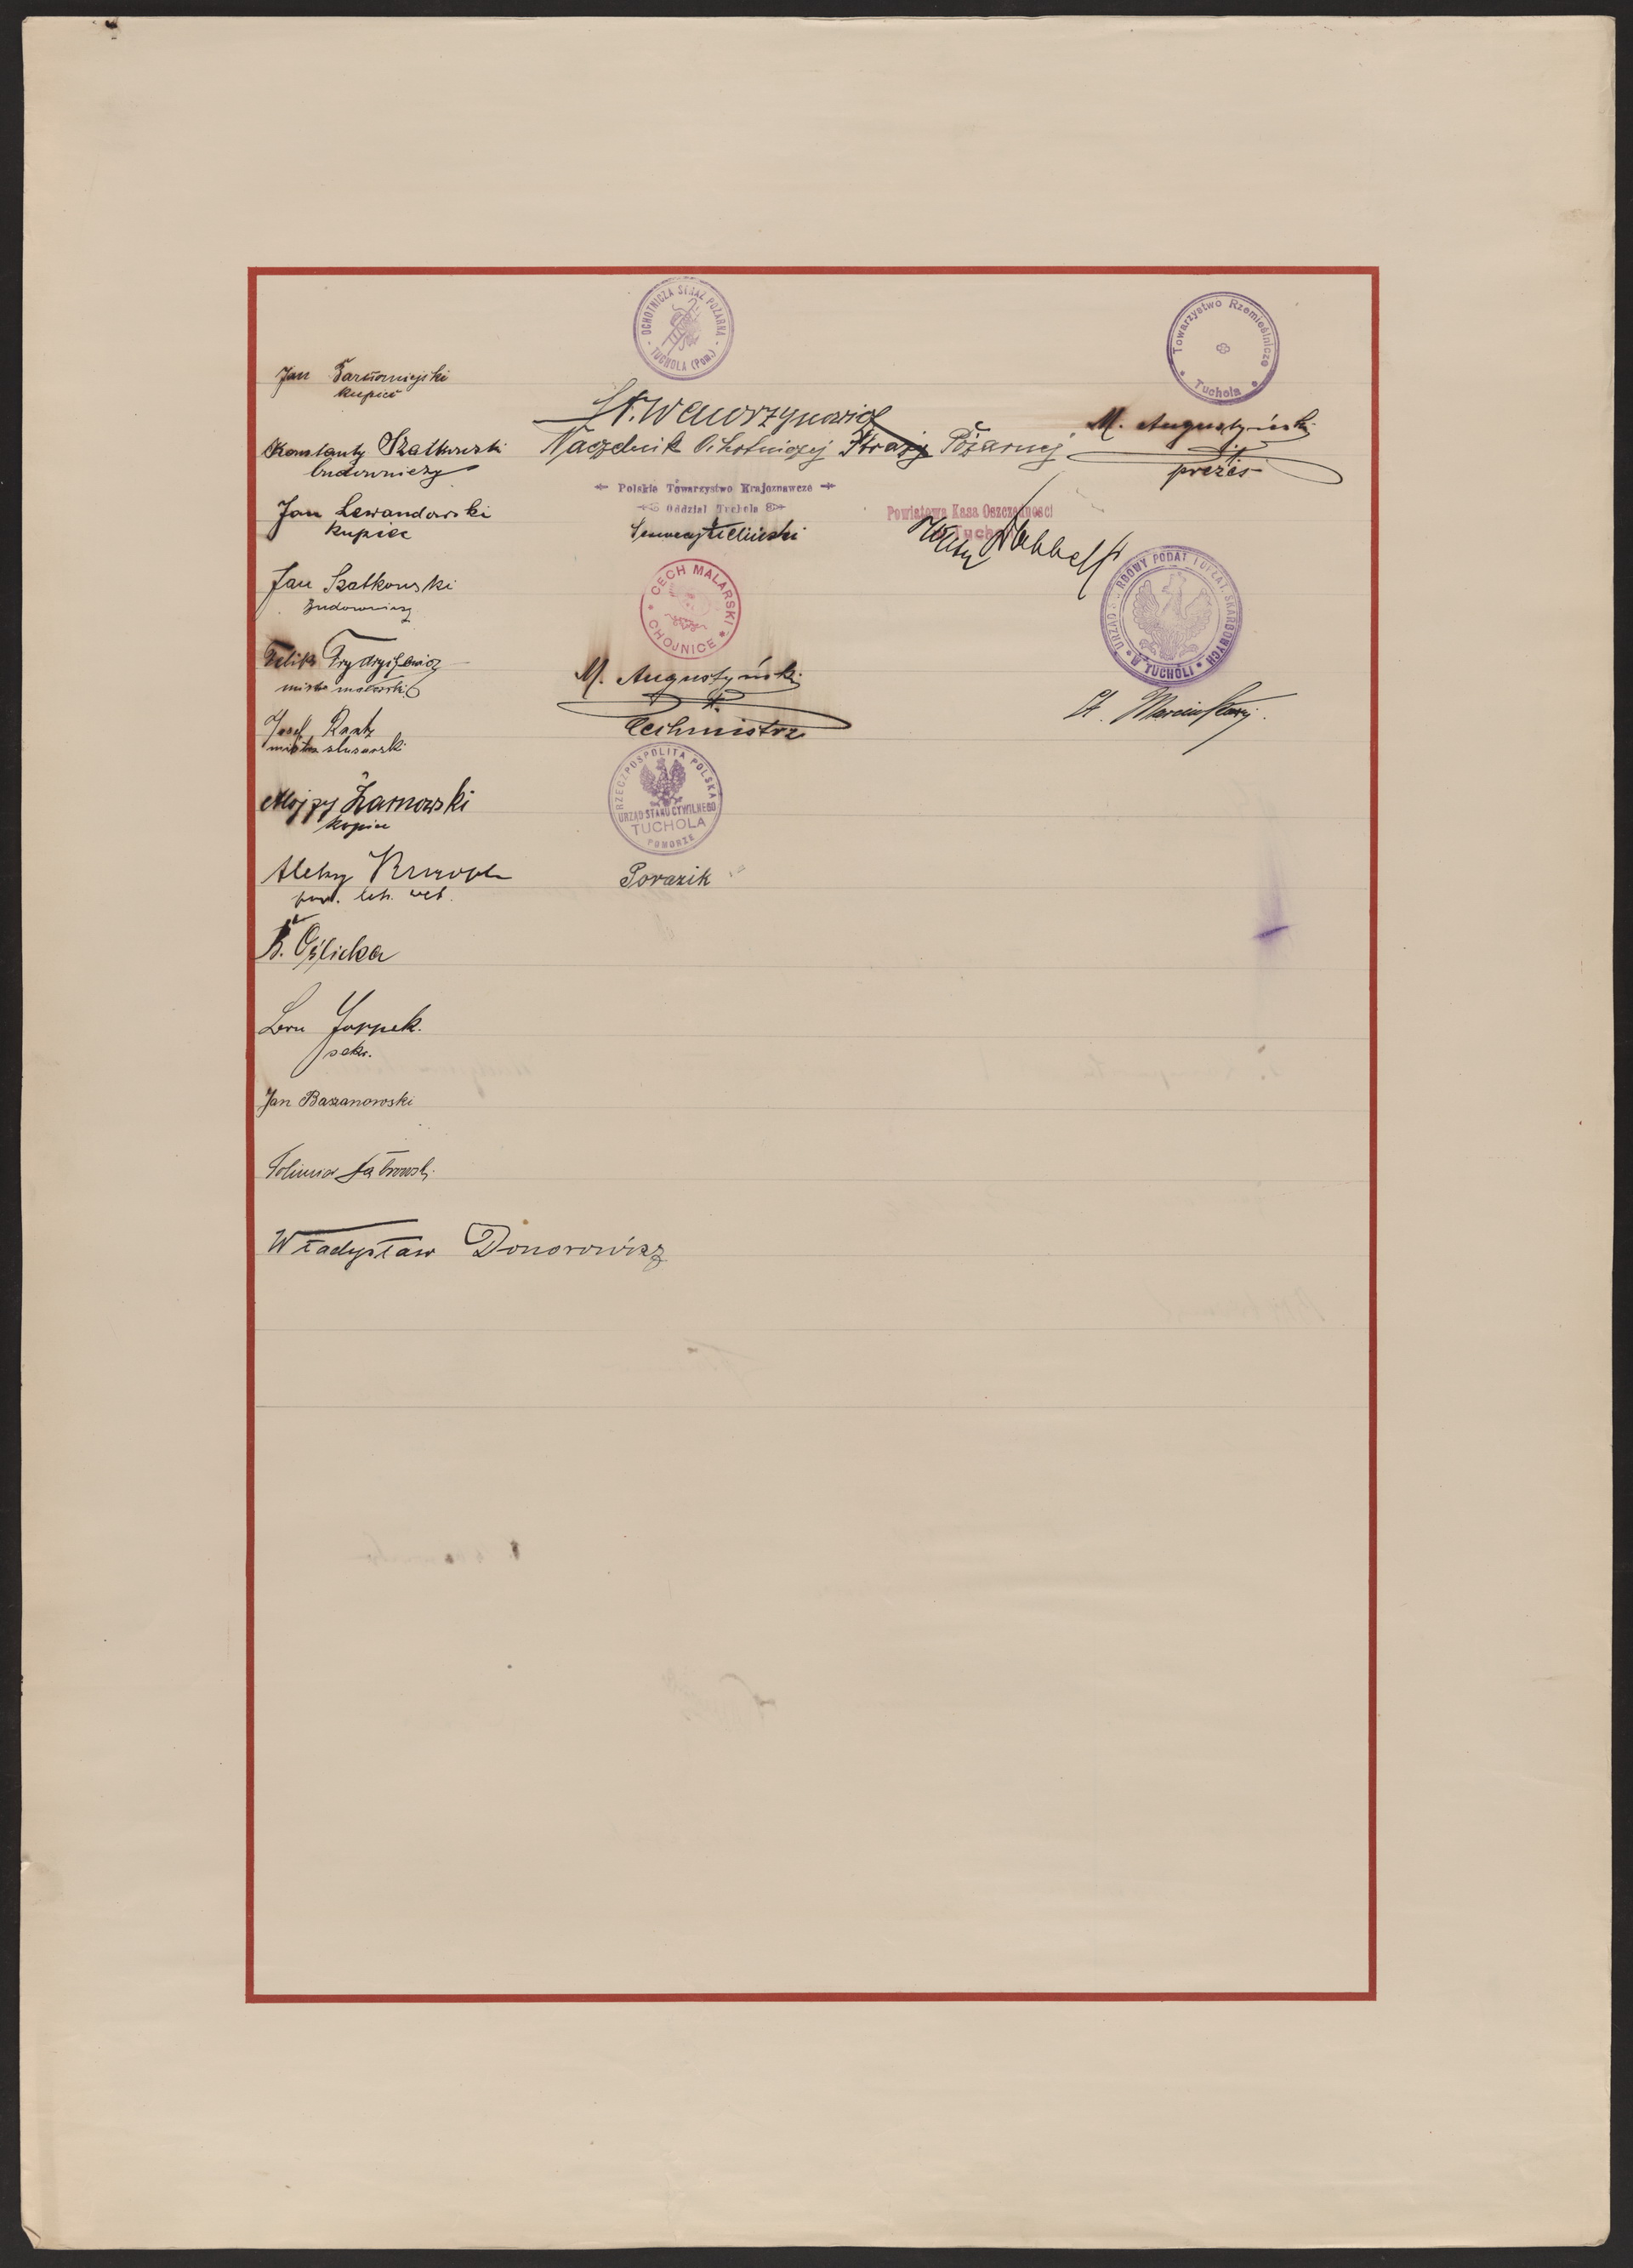 OCHOTNICZA STRAŻ POŻARNA
- TUCHOLA (Pom.) -
Towarzystwo Rzemieślnicze
Tuchola
Jan
kupiec
St. Wawrzynowicz
Naczelnik Ochotniczej Straży Pożarnej
M. Augustyński
prezes
Konstanty Szatkowski
budowniczy
Polskie Towarzystwo Krajoznawcze
Oddział Tuchola
Powiatowa Kasa Oszczędności
Tuchola
Jan Lewandowski
kupiec
Jan Szatkowski
budowniczy
CECH MALARSKI
CHOJNICE
URZĄD SKARBOWY PODAT. I OPŁAT SKARBOWYCH
W TUCHOLI
Feliks Frydrysiewicz
mistrz malarski
M. Augustyński
Cechmistrz
St.
Józef Raatz
mistrz ślusarski
RZECZPOSPOLITA POLSKA
URZĄD STANU CYWILNEGO
TUCHOLA
POMORZE
Alojzy Żarnowski
kupiec
Aleksy
pow. lek. wet.
Porazik
B. Oślicka
Leon Jorpek.
sekr.
Jan Baszanowski
Władysław Donorowicz